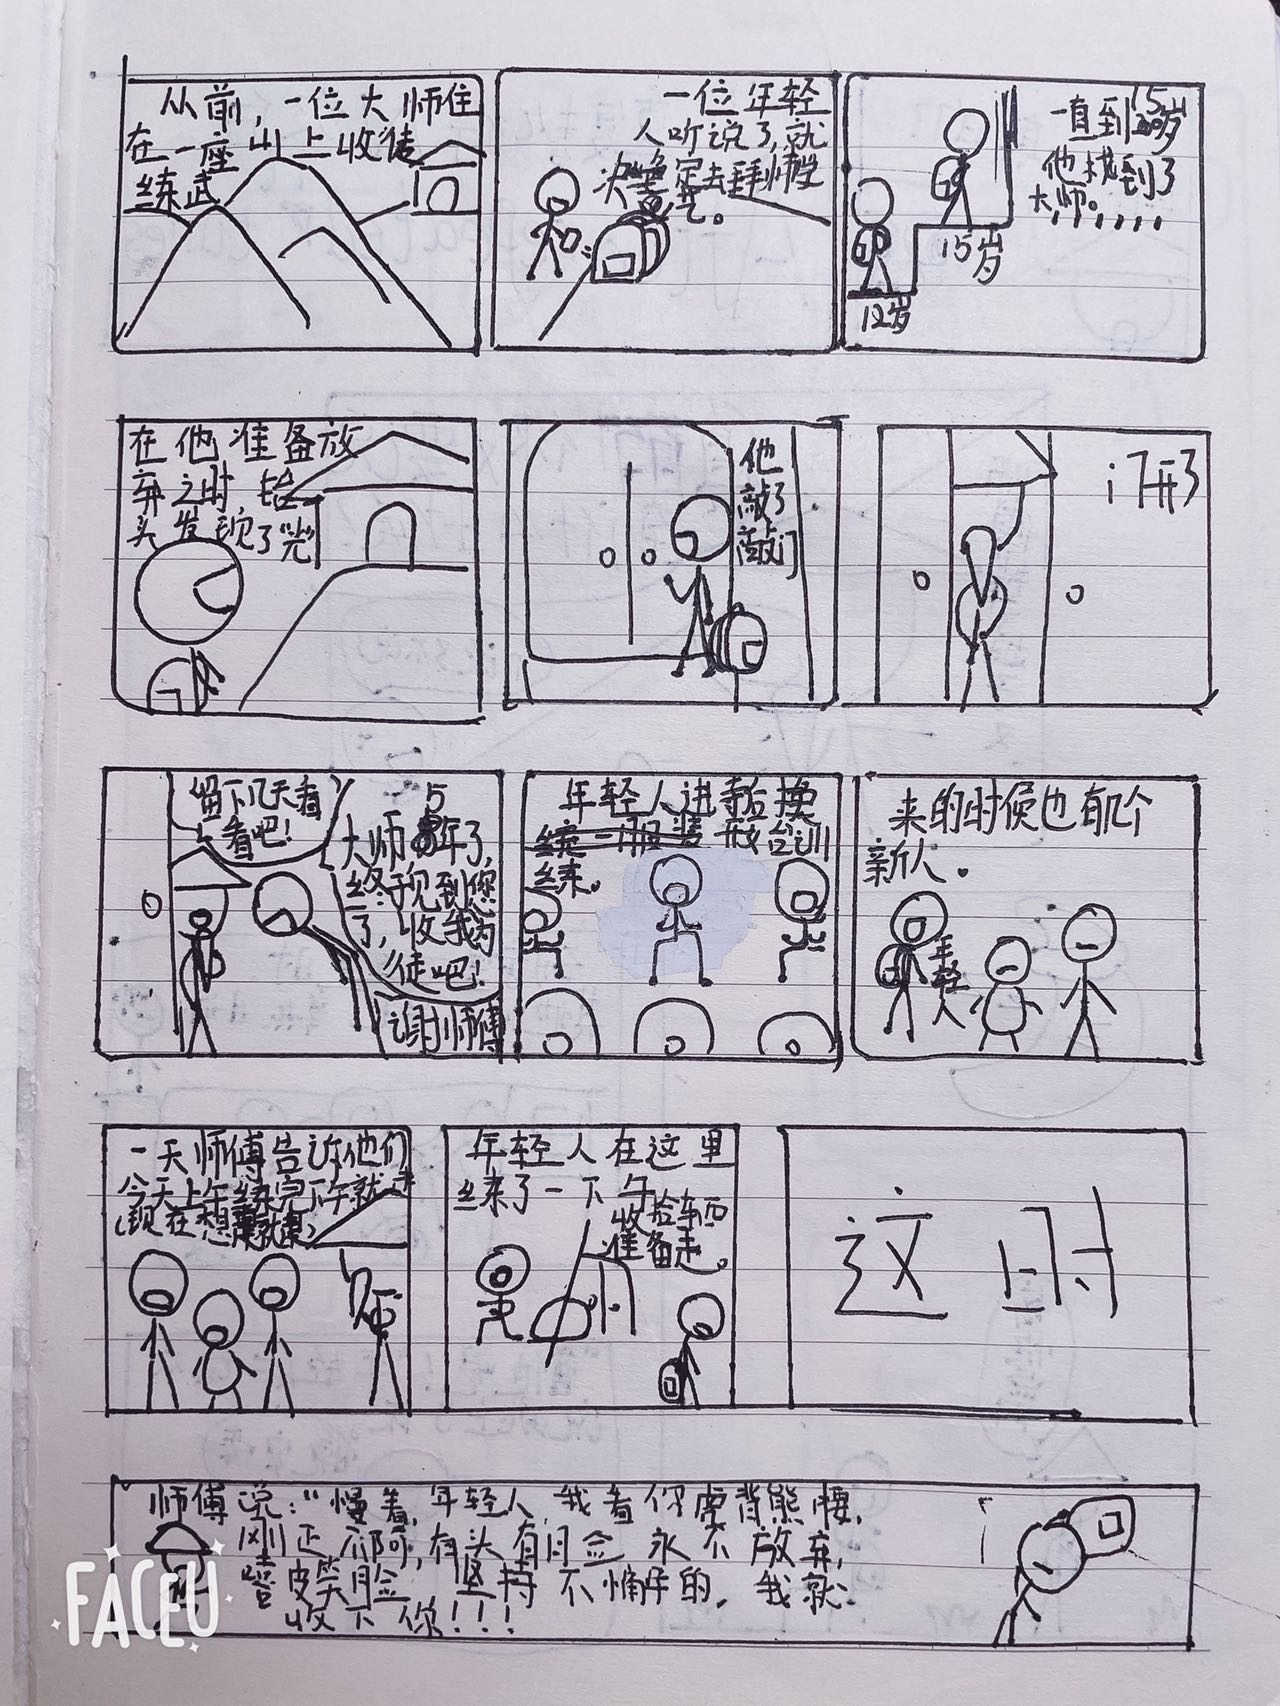 从前，一位大师住
在一座山上收徒
练武
一位年轻
人听说了，就
决定去拜师学
艺。
一直到15岁
他找到了
大师。，，，，
15岁
12岁
在他准备放
弃之时 抬
头发现了“光”
他
敲了
敲门
门开了
留下几天看
看吧！
5
大师 年了，
终于见到您
了，收我为
徒吧！
谢师傅
年轻人进寺后换
开始训
练。
来的时候也有几个
新人。
年
轻
人
一天师傅告诉他们
今天上午练完下午就走
（现在想 就 ）
年轻人在这里
练了一下午
收拾东西
准备走。
这时
师傅说：“慢着，年轻人，我看你虎背熊腰，
刚正不阿，有头有脸 永不放弃，
嘻皮笑脸，坚持不懈的，我就
收下你！！！
FACEU